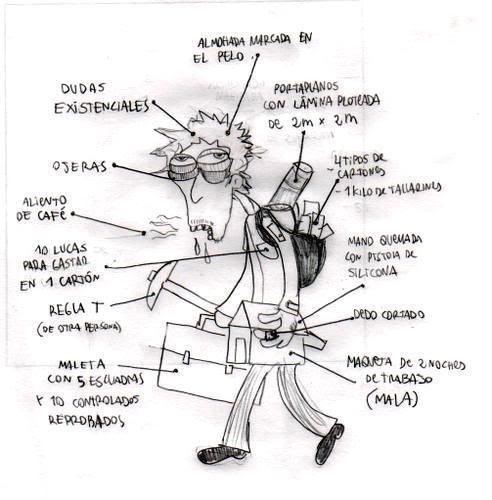 ALMOHADA MARCADA EN
EL PELO
DUDAS
EXISTENCIALES
PORTAPLANOS
CON LÁMINA PLOTEADA
DE 2m x 2m
OJERAS
4 TIPOS DE
- CARTONES
- 1 KILO DE TALLARINES
ALIENTO
DE CAFÉ
10 LUCAS
PARA GASTAR
EN 1 CARTÓN
MANO QUEMADA
CON PISTOLA DE
SILICONA
REGLA T
(DE OTRA PERSONA)
DEDO CORTADO
MALETA
CON 5 ESCUADRAS
Y 10 CONTROLADOS
REPROBADOS
MAQUETA DE 2 NOCHES
DE TRABAJO
(MALA)